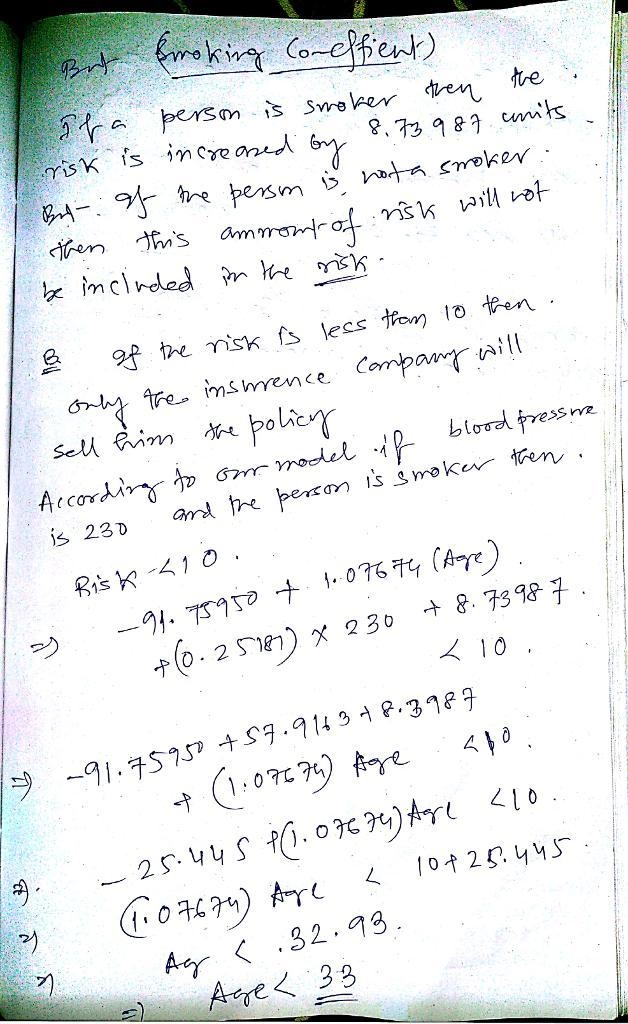 But Smoking Co-effient)
If a person is smoker then the
risk is increased by 8.73987 units
But- if the person is not a smoker.
then this ammont of risk will not
be included in the risk.
Q If the risk is less than 10 then.
only the insurence company will
sell him the policy
According to our model if blood pressure
is 230 and the person is smoker then.
Risk <10.
=) -91.75950 + 1.07674 (Age)
+(0.25181) × 230 + 8.73987.
< 10.
=) -91.75950 + 57.9163 + 8.3987
+ (1.07674) Age <10.
=). - 25.445 + (1.07674) Age <10.
=) (1.07674) Age < 10+25.445
=) Ag < .32.93.
=) Age < 33